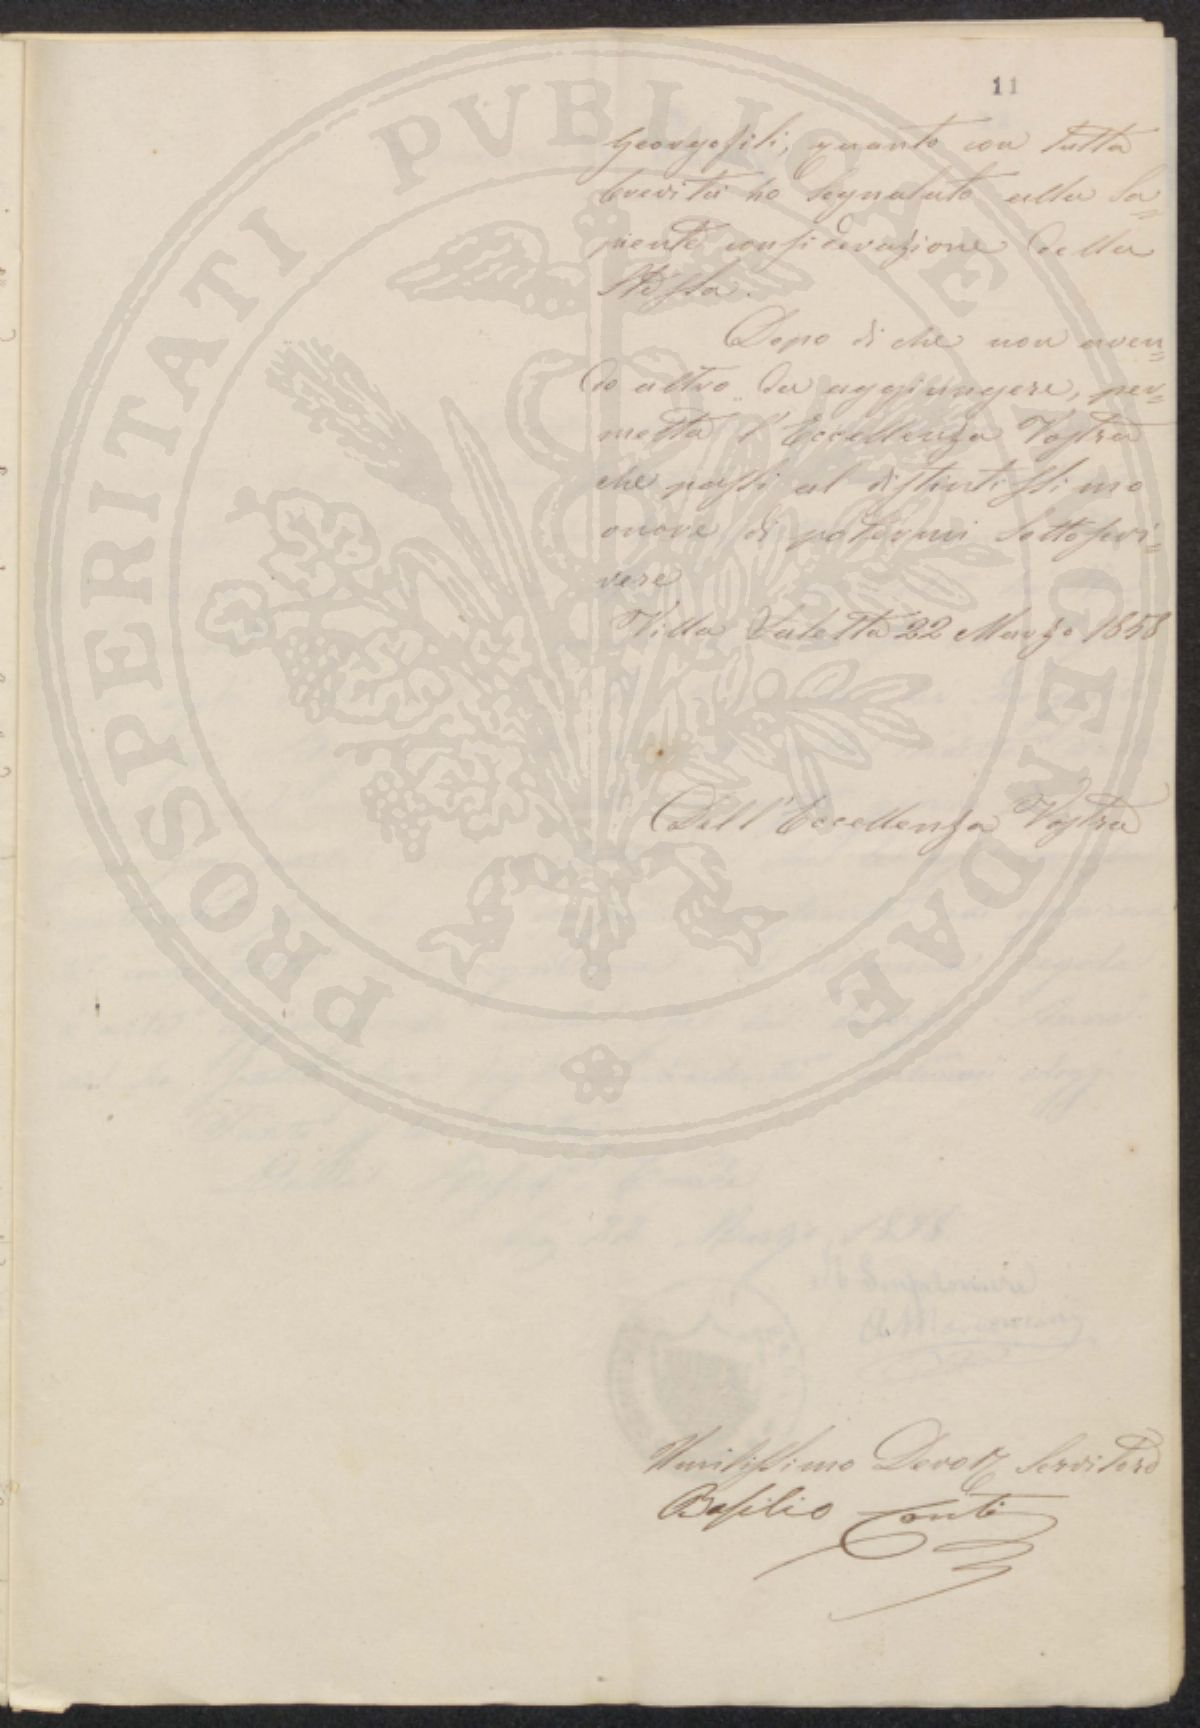 11
Georgofili, quanto con tutta
brevità ho segnalato alla Sa=
piente considerazione della
Stessa.
Dopo di che non aven=
do altro da aggiungere, per=
metta l'Eccellenza Vostra
che passi al distintissimo
onore di potermi Sottoscri=
vere
Villa Saletta 22 Marzo 1858
Dell'Eccellenza Vostra
Umilissimo Devot. Servitore
Basilio Conti
PROSPERITATI PVBLICAE AVGENDAE